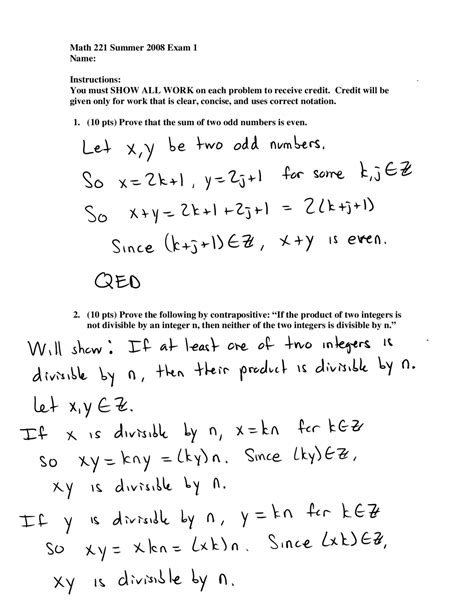 Math 221 Summer 2008 Exam 1
Name:
Instructions:
You must SHOW ALL WORK on each problem to receive credit. Credit will be
given only for work that is clear, concise, and uses correct notation.
1. (10 pts) Prove that the sum of two odd numbers is even.
Let x,y be two odd numbers.
So x=2k+1, y=2j+1 for some k,j∈ℤ
So x+y=2k+1+2j+1 = 2(k+j+1)
Since (k+j+1)∈ℤ, x+y is even.
QED
2. (10 pts) Prove the following by contrapositive: “If the product of two integers is
not divisible by an integer n, then neither of the two integers is divisible by n.”
Will show: If at least one of two integers is
divisible by n, then their product is divisible by n.
Let x,y∈ℤ.
If x is divisible by n, x=kn for k∈ℤ
so xy=kny=(ky)n. Since (ky)∈ℤ,
xy is divisible by n.
If y is divisible by n, y=kn for k∈ℤ
So xy=xkn=(xk)n. Since (xk)∈ℤ,
xy is divisible by n.